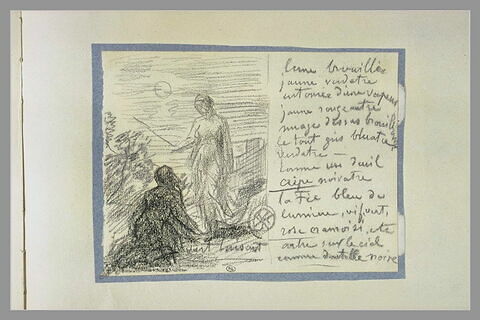 lune brouillée
jaune verdatre
entourée d'une vapeur
jaune rougeatre
nuage dessus brouillant
le tout gris bleuatre
verdatre —
comme un deuil
crêpe noiratre
la Fée bleu de
lumiere, vif, vert,
rose cramoisi, etc
arbre sur le ciel
comme dentelle noire
luisant